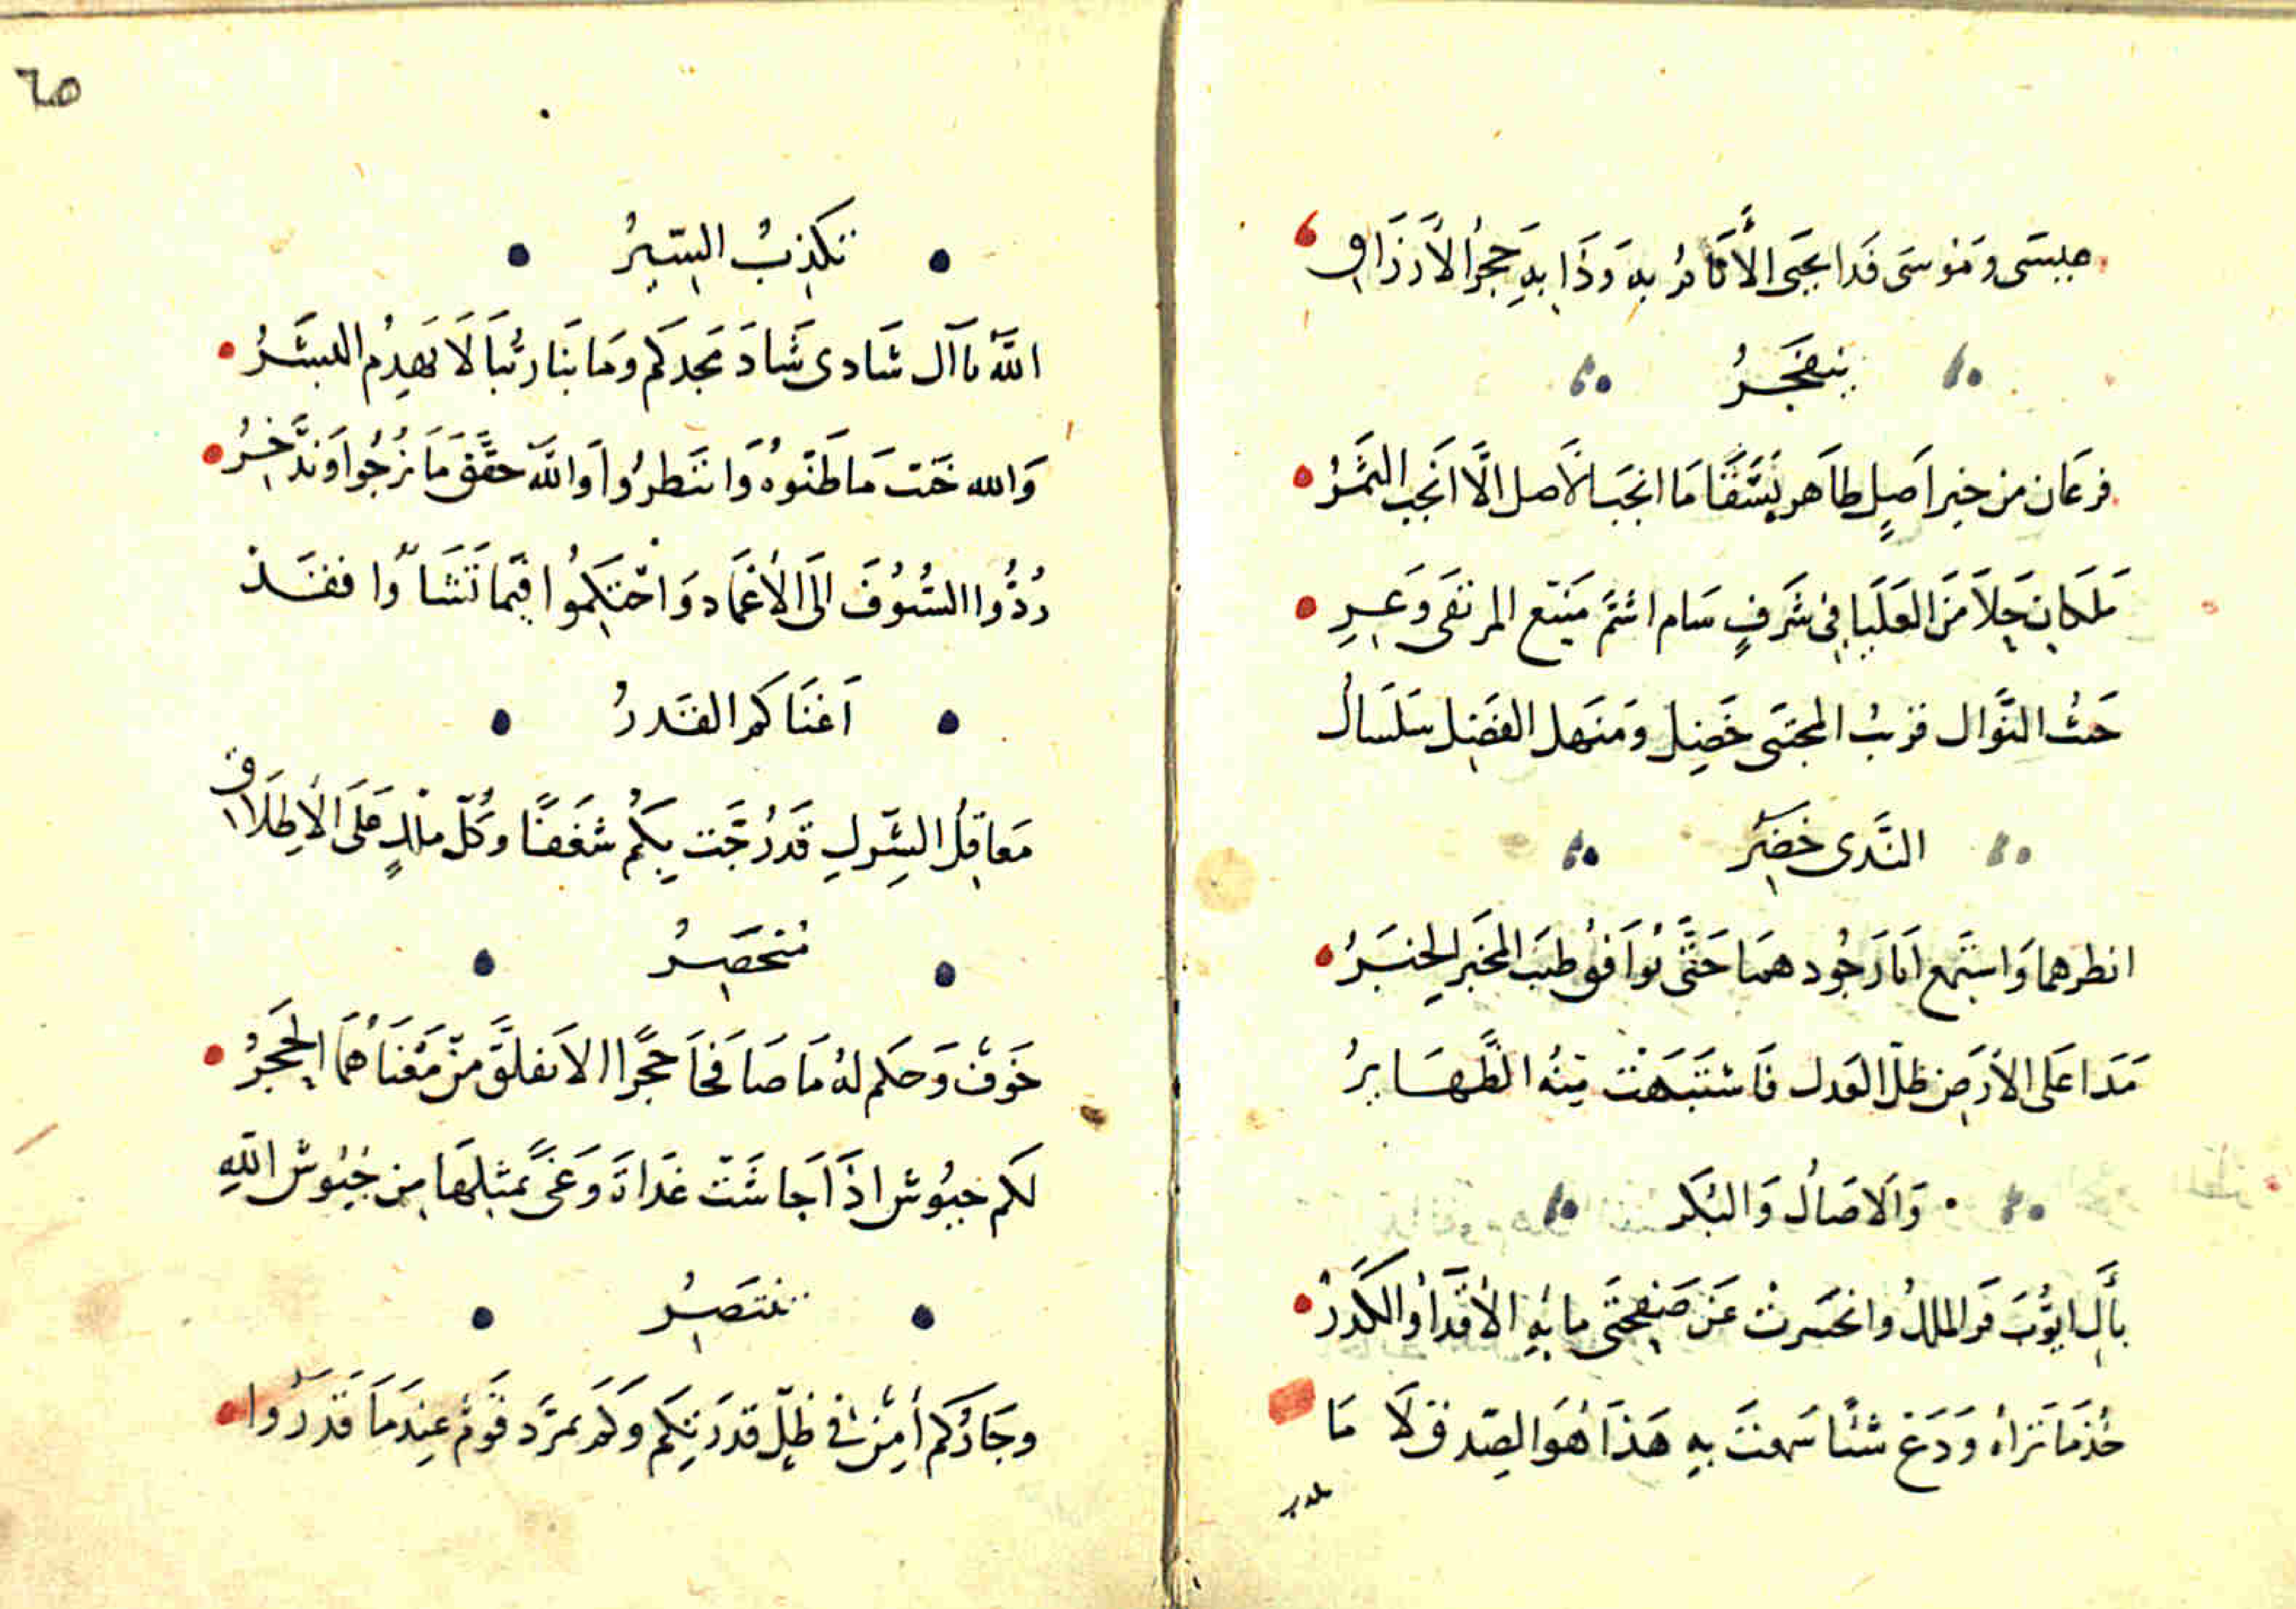 عيسى وَمُوسَى فَذا يحيَى الأَنَامُ بهِ وَذَا بهِ حَجَرُ الأَرزَاقِ
ينفَجَرُ
فرعَان من خير اَصلٍ طاهر بَسَقَا مَا انجبَ الاَصل الَّا اَنجب الثمَرُ
مَلكانِ حَلاَ مَنَ العَليَا فِى شَرَفٍ سَام اشمّ مَنيع المرتقَى وَعِرِ
جَمُّ النَّوَال قربُ المجتنَى خَضِل وَمَنهَل الفَضِل سَلسَال
النَّدَى خَضِرُ
انظرهما وَاستَمِع اَثارَ جُودهمَا حَتَّى تُوَافق طيبَ المخبَر الخبَرُ
مَدا عَلى الأرضِ ظلّ العَدل فَاشتَبَهَتْ مِنهُ الظَّهَايِرُ
وَالاصَالُ وَالبُكَر
بأَلِ ايُّوبَ قَر الملكُ وانحَسَرتْ عَن صَفِحَتَى مائهِ الأَقذَأ وَالكَدَرُ
خُذ مَا تَراهُ وَدَع شئًا سَمعتَ بهِ هَذَا هُوَ الصِدق لَا مَا
٦٥
تكذِبُ السّيرُ
اللّهُ يا آل شَادى شَادَ مَجدَكم وَمَا بَنا رُتبًا لَا يَهدِمُ البشَرُ
وَالله خَت مَا ظَنّوهُ وَانتَظرُوا وَاللّه حَقَّقَ مَا نرجُوا وَنَدَّخِرُ
رُدُّوا السُّيُوفَ الَى الأَغمَاد وَاحْتَكِمُوا فيمَا تَشَاؤُا فقَد
اَغنَاكم القَدرُ
مَعاقِلُ الشِّركِ قَد رُجَّت بِكُم شغَفًا وَكُلّ ملكٍ عَلَى الأطِلَاقِ
مُنحَصِرُ
خَوفٌ وَحكم لهُ مَا صَافحَا حَجًرا الا تَفلقَ مِنْ مَعْنَاهُمَا الحَجَرُ
لَكم جيُوش اذَا جَاشَتْ غَدَاةَ وَغىً بمثِلهَا مِن جُيُوش اللّهِ
ننتَصِرُ
وَجَارُكم اَمِنٌ فى ظلِّ قدرَتِكم وَكَم تمرّد قَومٌ عِندَمَا قَدَرُوا